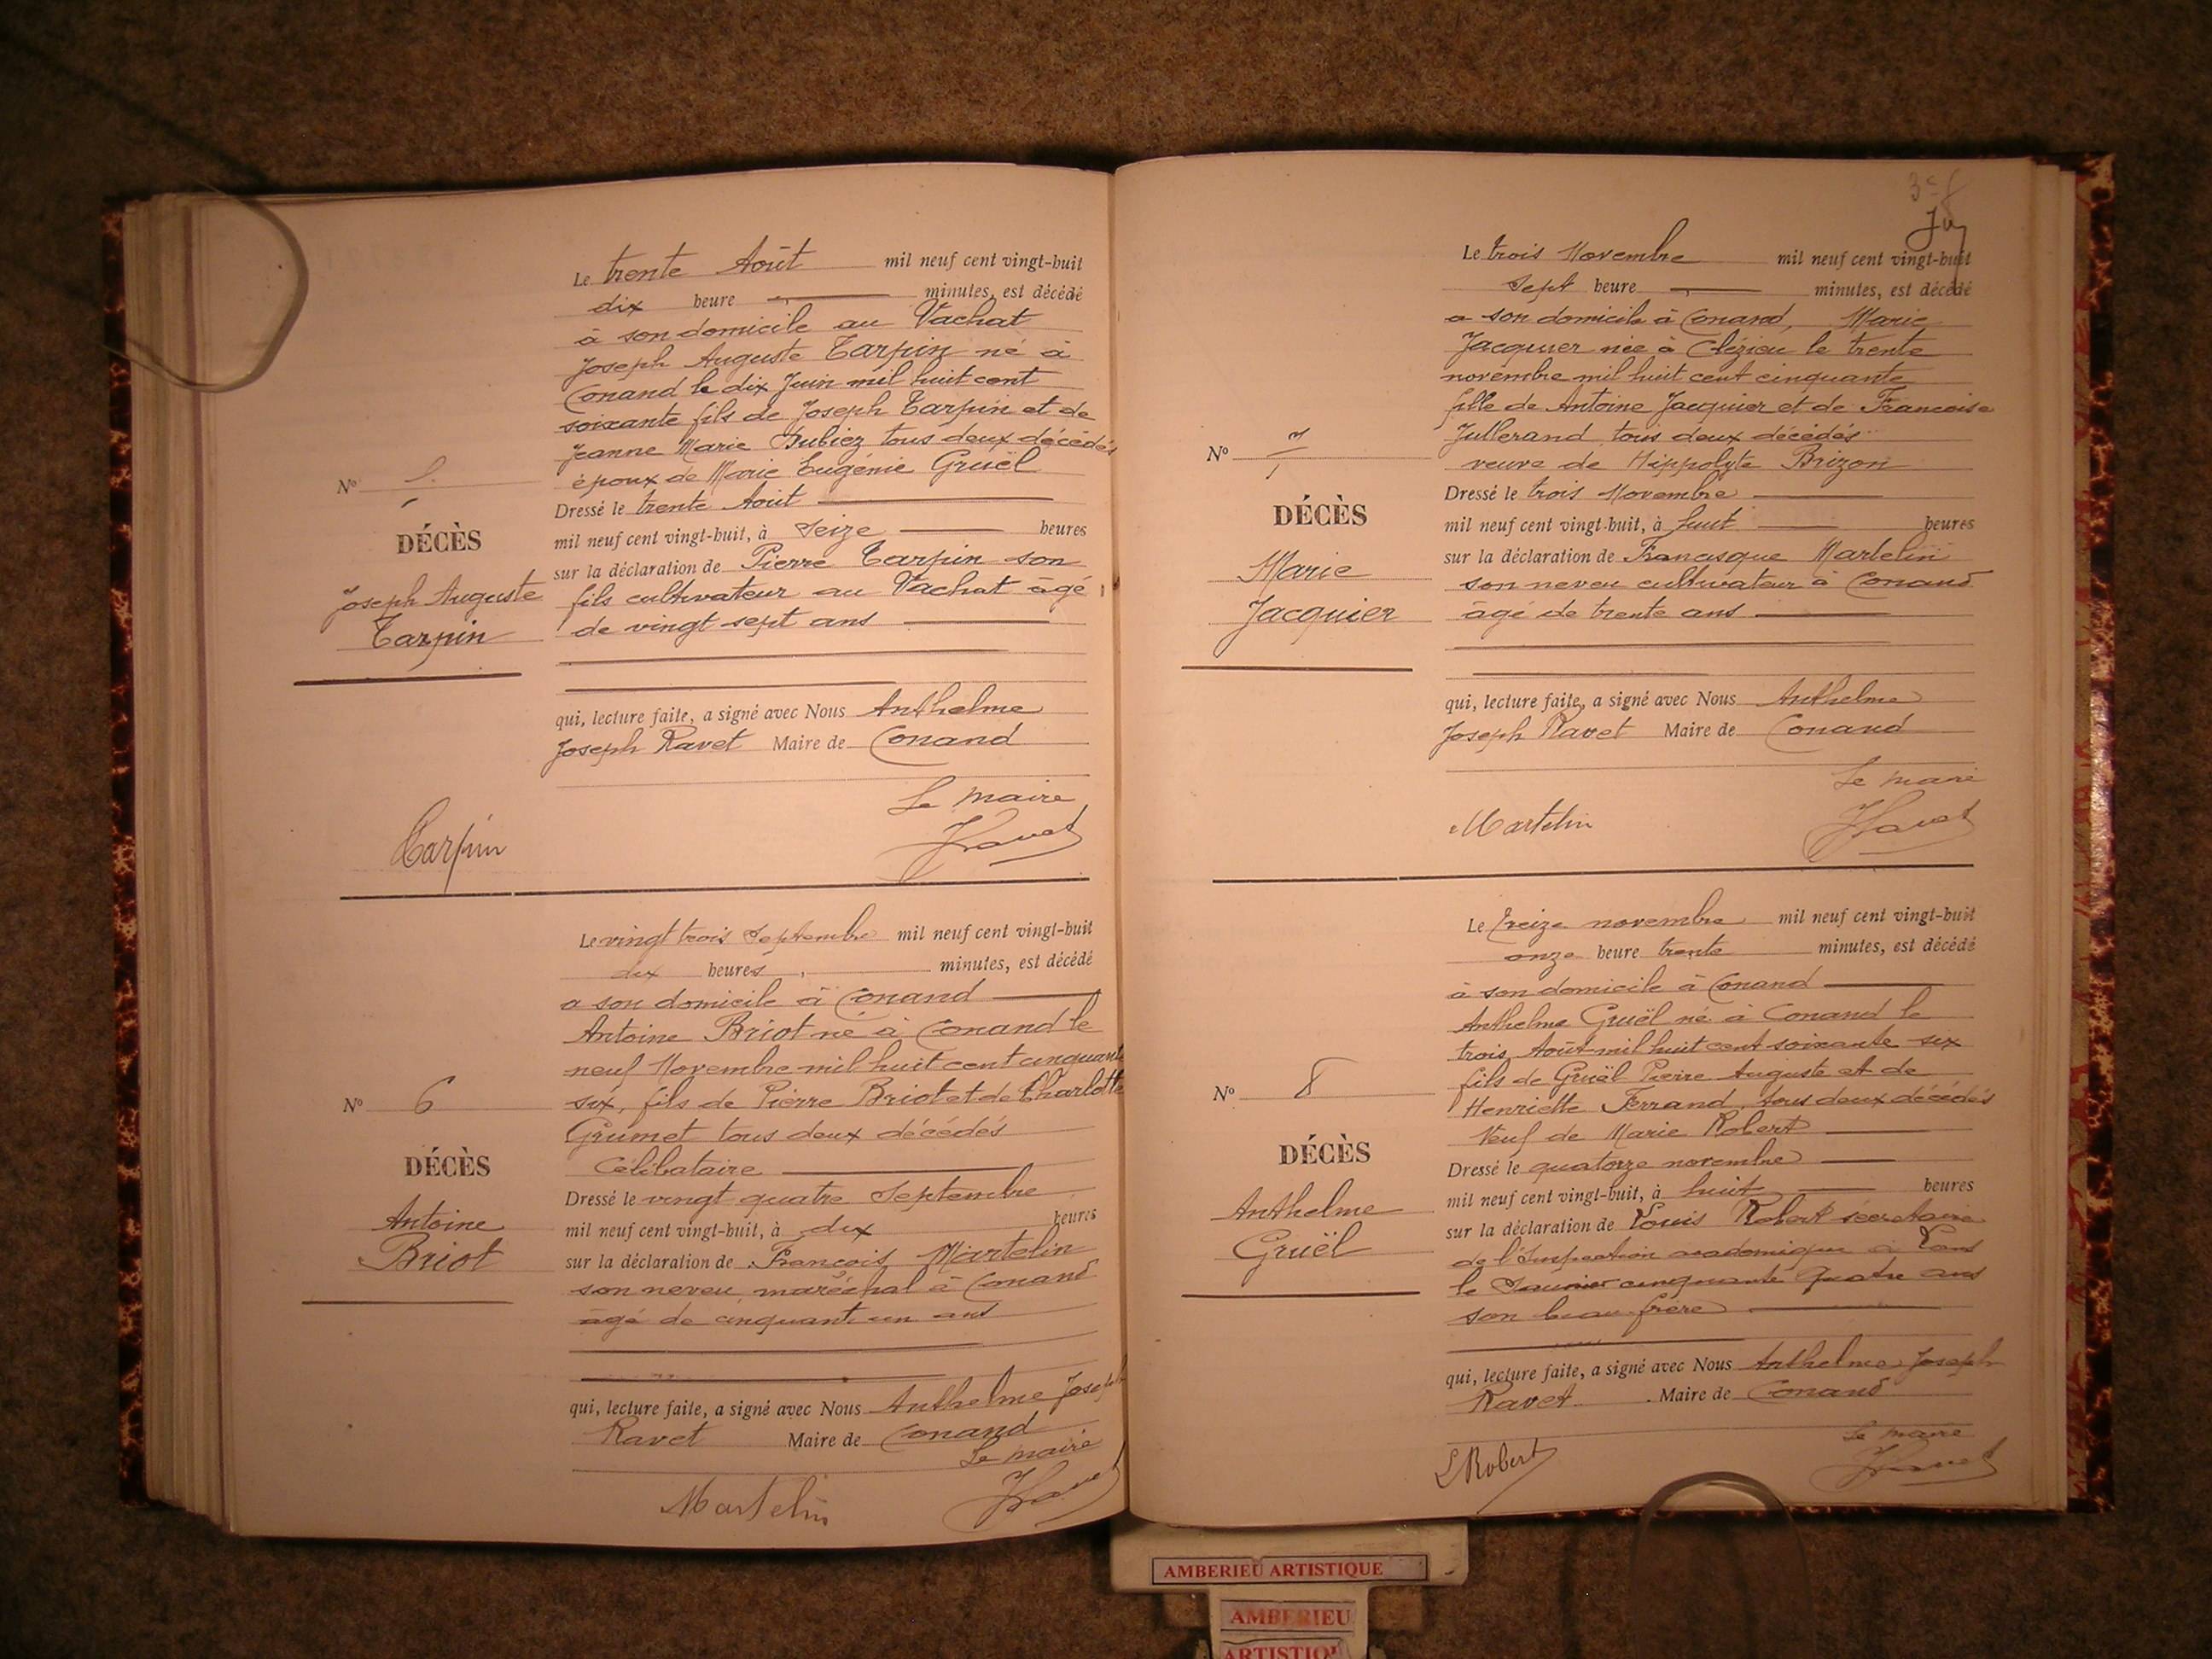 Le trente Août mil neuf cent vingt-huit
dix heure minutes, est décédé
à son domicile au Vachat
Joseph Auguste Tarpin né à
Conand le dix Juin mil huit cent
soixante fils de Joseph Tarpin et de
Jeanne Marie Dubiez tous deux décédés
époux de Marie Eugénie Gruël
Dressé le trente Août
mil neuf cent vingt-huit, à Seize heures
sur la déclaration de Pierre Tarpin son
fils cultivateur au Vachat âgé
de vingt sept ans
qui, lecture faite, a signé avec Nous Anthelme
Joseph Ravet Maire de Conand
Le maire
Tarpin JRavet
No 5
DÉCÈS
Joseph Auguste
Tarpin
Le vingt trois Septembre mil neuf cent vingt-huit
dix heures minutes, est décédé
a son domicile à Conand
Antoine Briot né à Conand le
neuf Novembre mil huit cent cinquante
six, fils de Pierre Briot et de Charlotte
Grumet tous deux décédés
Célibataire
Dressé le vingt quatre Septembre
mil neuf cent vingt-huit, à dix heures
sur la déclaration de François Martelin
son neveu maréchal à Conand
âgé de cinquante un ans
qui, lecture faite, a signé avec Nous Anthelme Joseph
Ravet Maire de Conand
Le maire
Martelin JRavet
No 6
DÉCÈS
Antoine
Briot
Le trois Novembre mil neuf cent vingt-huit
Sept heure minutes, est décédé
a son domicile à Conand, Marie
Jacquier née à Clézieu le trente
novembre mil huit cent cinquante
fille de Antoine Jacquier et de Francoise
Jullerand tous deux décédés
veuve de Hippolyte Brizon
Dressé le trois Novembre
mil neuf cent vingt-huit, à huit heures
sur la déclaration de Francisque Martelin
son neveu cultivateur à Conand
âgé de trente ans
qui, lecture faite, a signé avec Nous Anthelme
Joseph Ravet Maire de Conand
Le maire
Martelin JRavet
No 7
DÉCÈS
Marie
Jacquier
Le treize novembre mil neuf cent vingt-huit
onze heure trente minutes, est décédé
à son domicile à Conand
Anthelme Gruël né à Conand le
trois Août mil huit cent soixante six
fils de Gruël Pierre Auguste et de
Henriette Ferrand, tous deux décédés
Veuf de Marie Robert
Dressé le quatorze novembre
mil neuf cent vingt-huit, à huit heures
sur la déclaration de Louis Robert secretaire
de l'Inspection academique à Lons
le Saunier cinquante quatre ans
son beau-frère
qui, lecture faite, a signé avec Nous Anthelme Joseph
Ravet Maire de Conand
Le maire
LRobert JRavet
No 8
DÉCÈS
Anthelme
Gruël
AMBERIEU ARTISTIQUE
AMBERIEU
ARTISTIQU